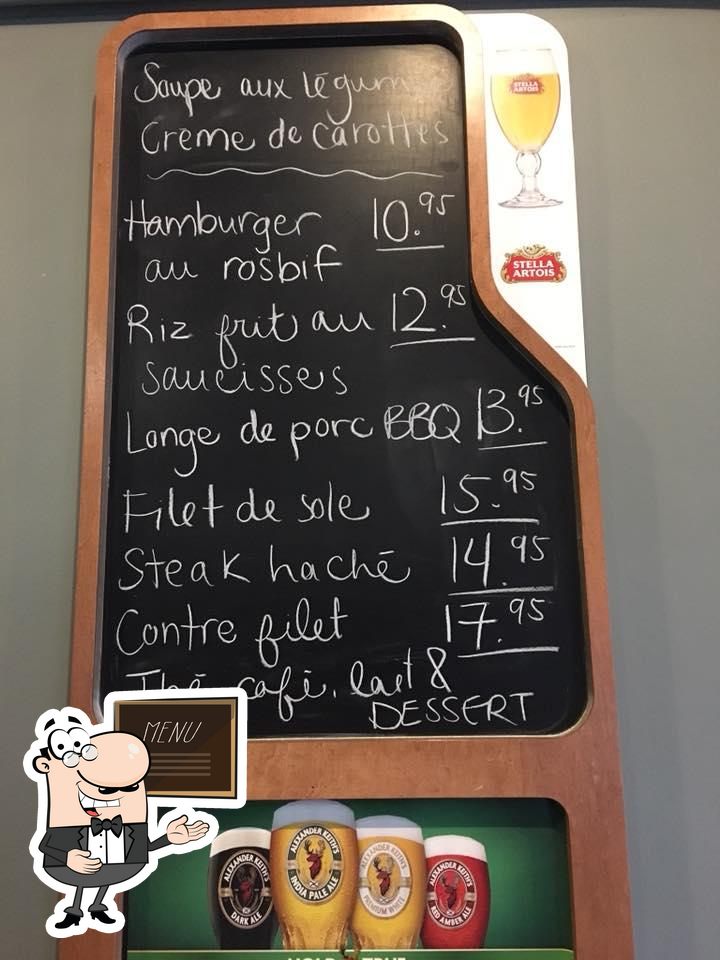 Soupe aux légum
Crème de carottes
Hamburger 10.95
au rosbif
Riz frit au 12.95
saucisses
Longe de porc BBQ 13.95
Filet de sole 15.95
Steak haché 14.95
Contre filet 17.95
Thé, café, lait &
DESSERT
STELLA ARTOIS
STELLA
ARTOIS
MENU
ALEXANDER KEITH'S
DARK ALE
ALEXANDER KEITH'S
INDIA PALE ALE
ALEXANDER KEITH'S
PREMIUM WHITE
ALEXANDER KEITH'S
RED AMBER ALE